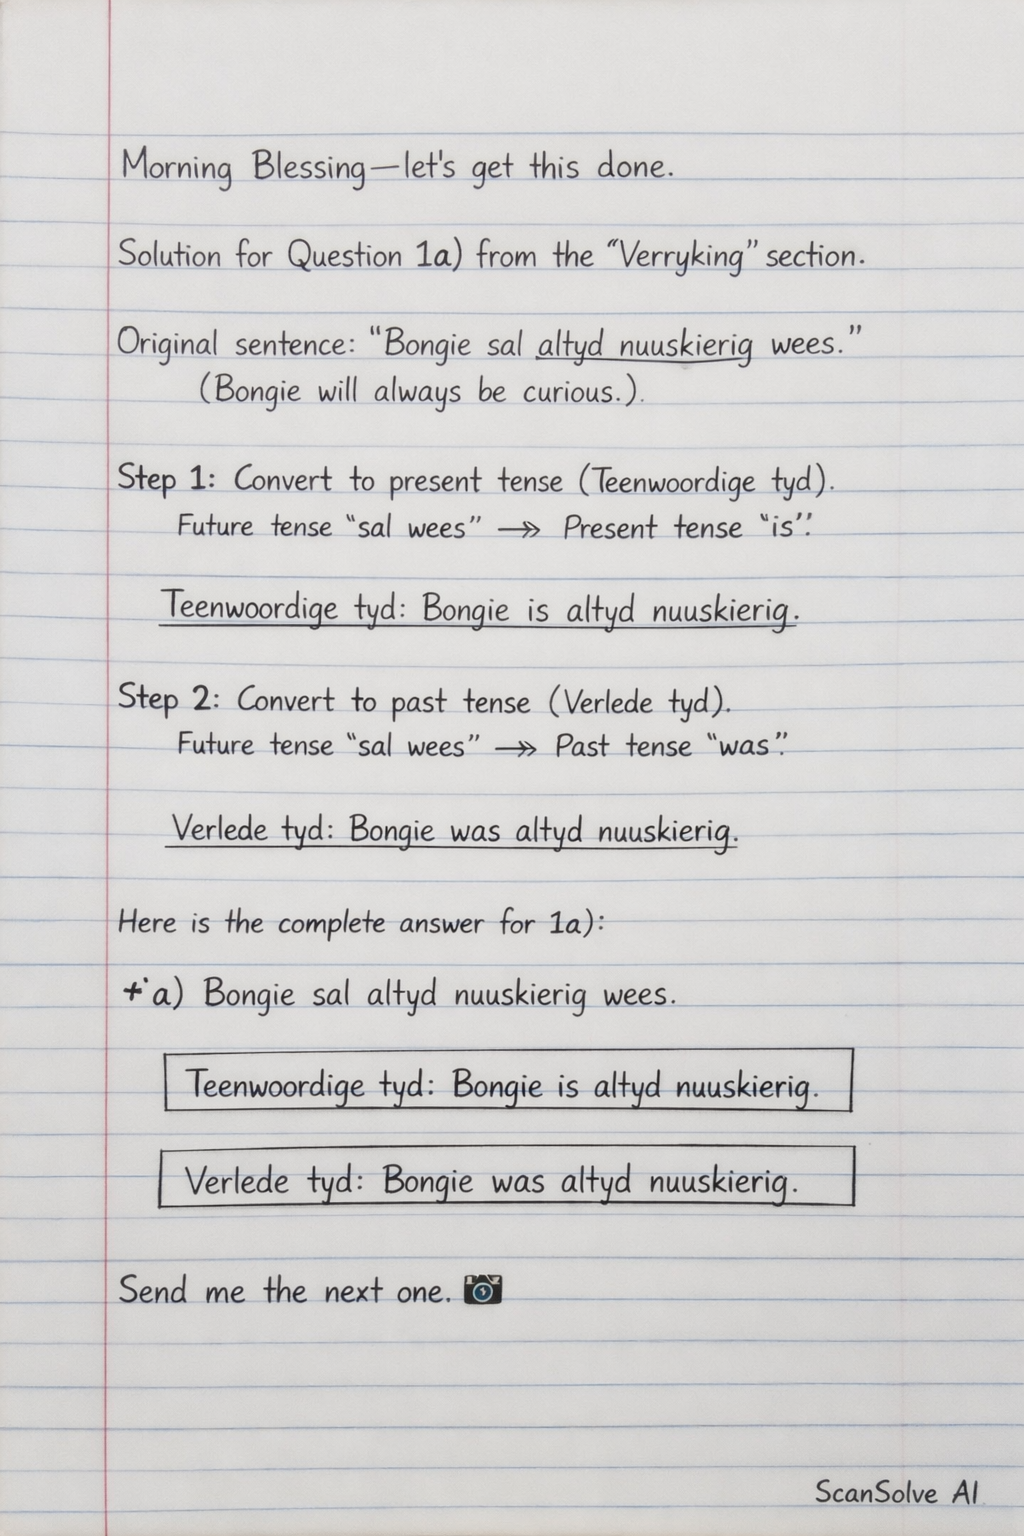 Morning Blessing—let's get this done.
Solution for Question 1a) from the "Verryking" section.
Original sentence: "Bongie sal altyd nuuskierig wees."
(Bongie will always be curious.).
Step 1: Convert to present tense (Teenwoordige tyd).
Future tense "sal wees" ↠ Present tense "is".
Teenwoordige tyd: Bongie is altyd nuuskierig.
Step 2: Convert to past tense (Verlede tyd).
Future tense "sal wees" ↠ Past tense "was".
Verlede tyd: Bongie was altyd nuuskierig.
Here is the complete answer for 1a):
a) Bongie sal altyd nuuskierig wees.
Teenwoordige tyd: Bongie is altyd nuuskierig.
Verlede tyd: Bongie was altyd nuuskierig.
Send me the next one. 📷
ScanSolve AI